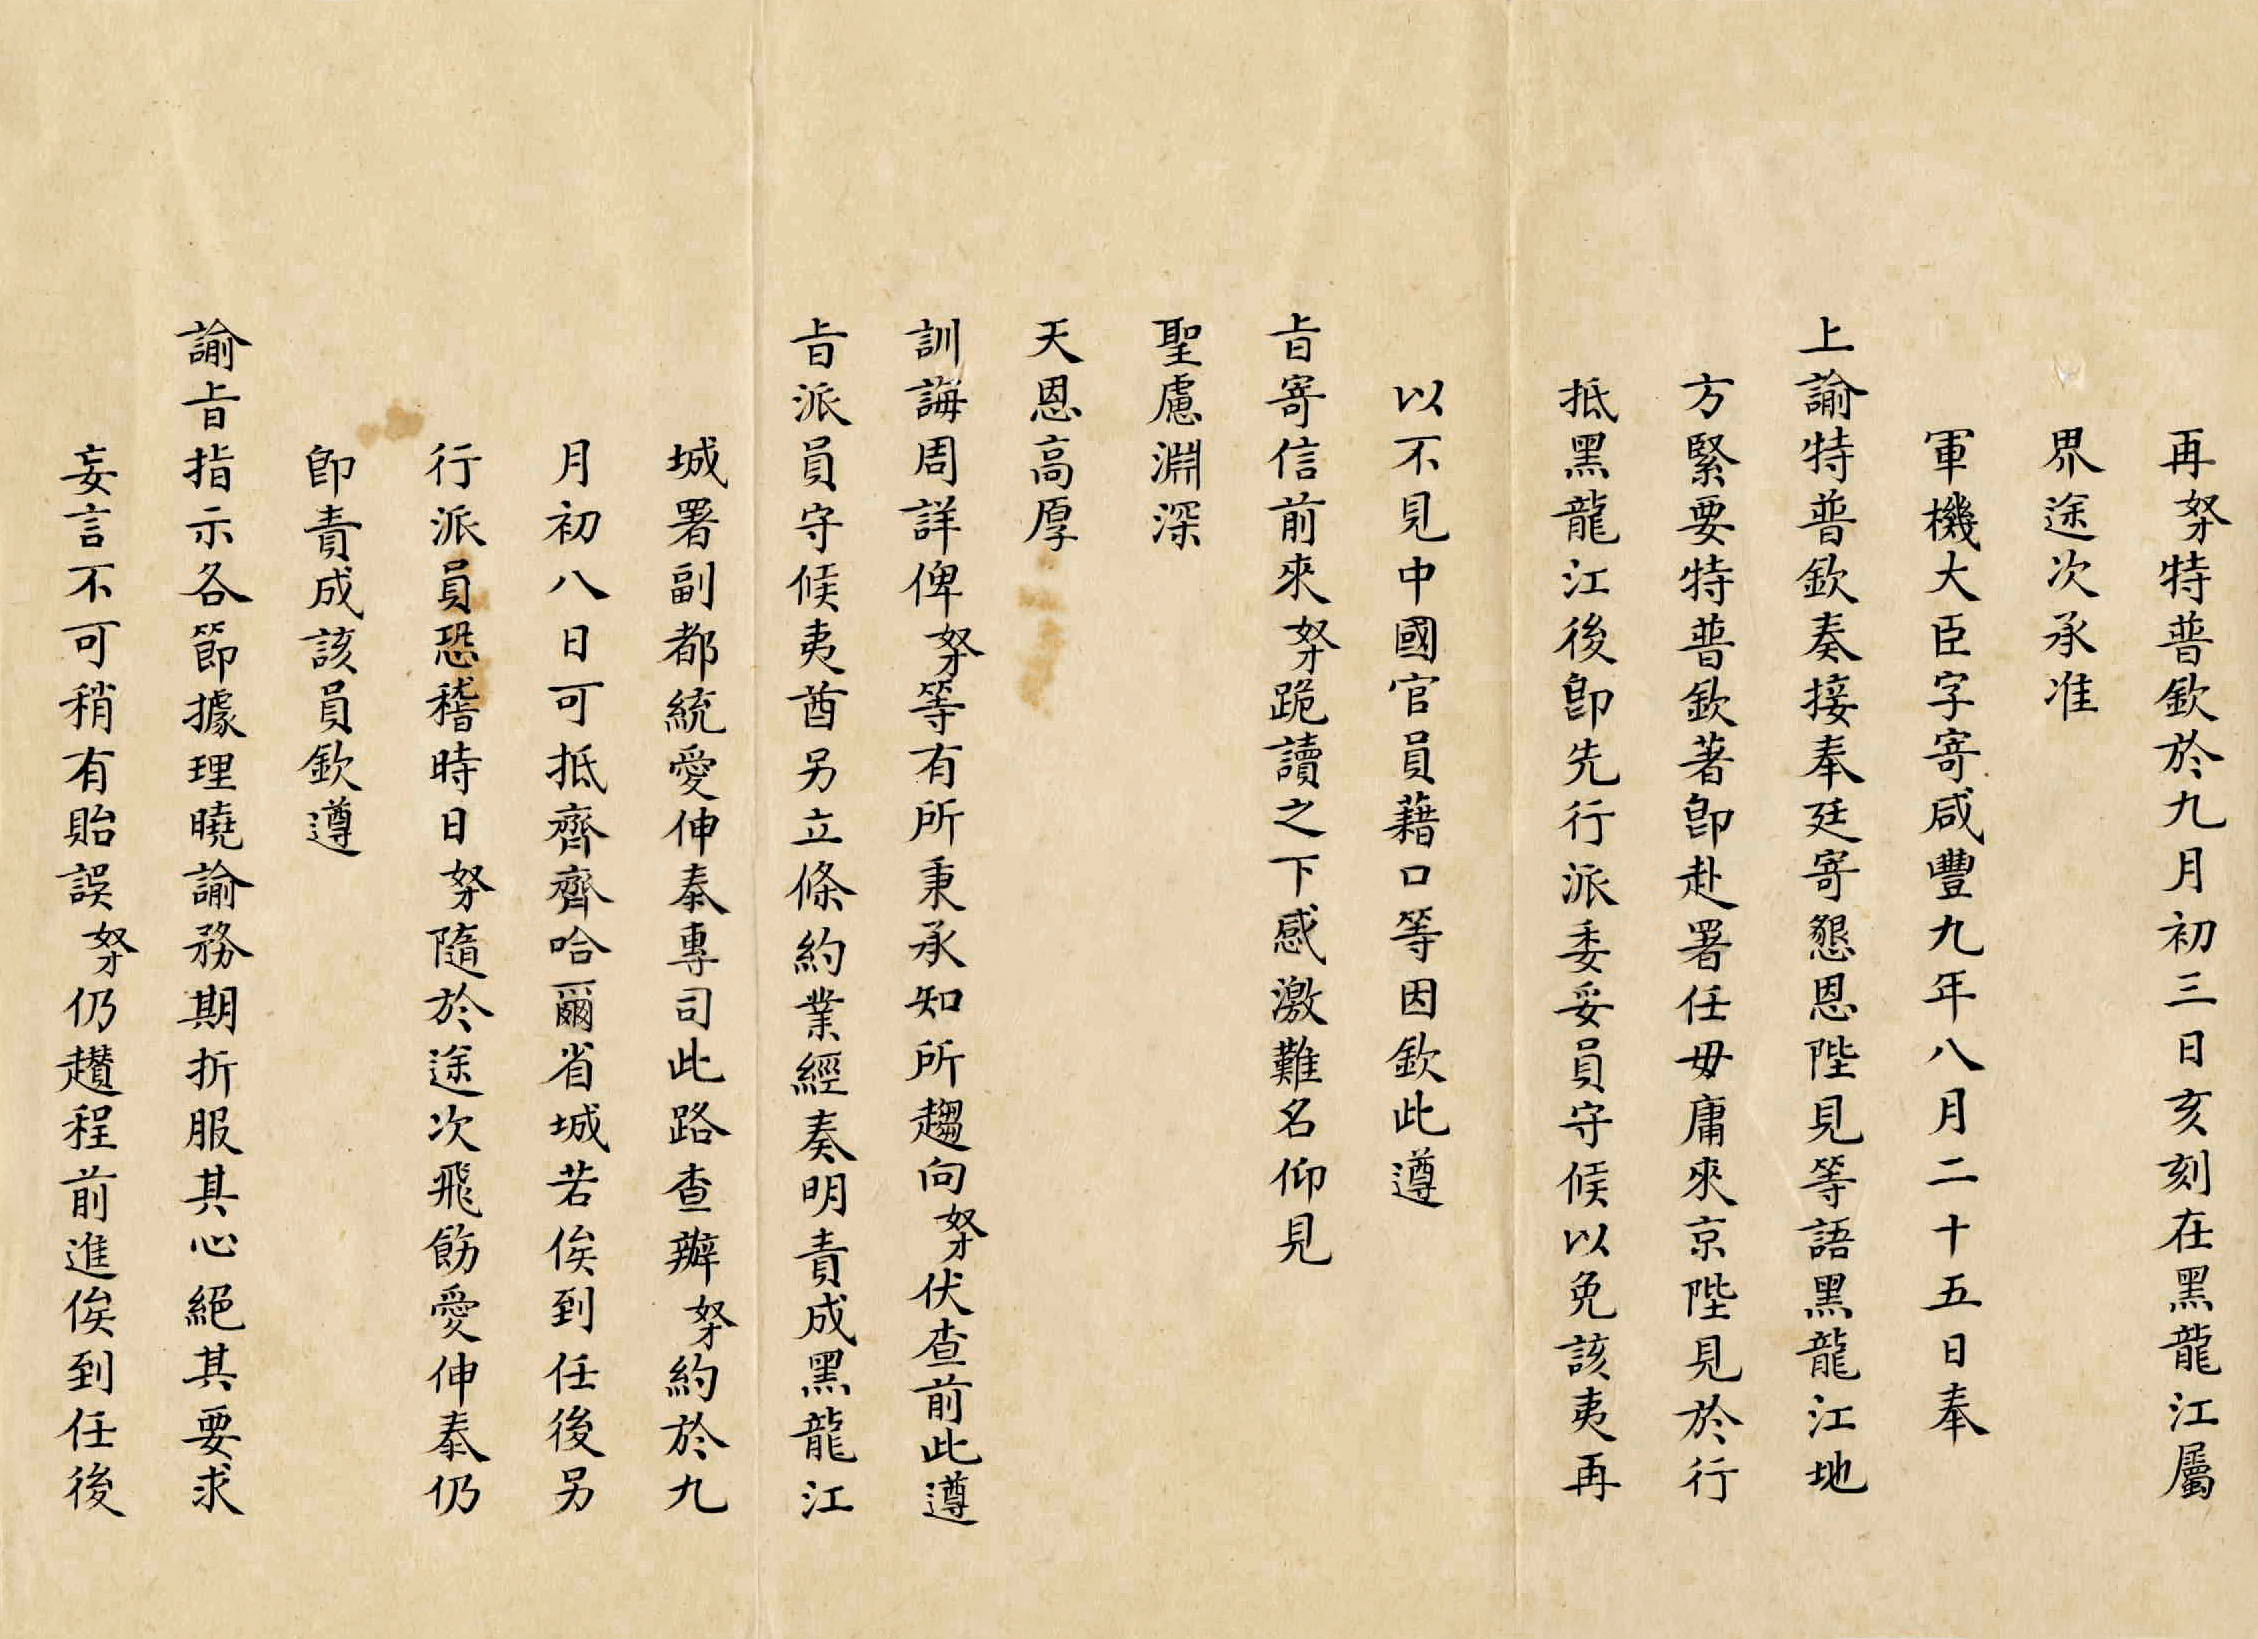 再奴才特普欽於九月初三日亥刻在黑龍江屬
界途次承准
軍機大臣字寄咸豐九年八月二十五日奉
上諭特普欽奏接奉廷寄懇恩陛見等語黑龍江地
方緊要特普欽著即赴署任毋庸來京陛見於行
抵黑龍江後即先行派委妥員守候以免該夷再
以不見中國官員藉口等因欽此遵
旨寄信前來奴才跪讀之下感激難名仰見
聖慮淵深
天恩高厚
訓誨周詳俾奴才等有所秉承知所趨向奴才伏查前此遵
旨派員守候夷酋另立條約業經奏明責成黑龍江
城署副都統愛伸泰專司此路查辦奴才約於九
月初八日可抵齊齊哈爾省城若俟到任後另
行派員恐稽時日奴才隨於途次飛飭愛伸泰仍
即責成該員欽遵
諭旨指示各節據理曉諭務期折服其心絕其要求
妄言不可稍有貽誤奴才仍趲程前進俟到任後